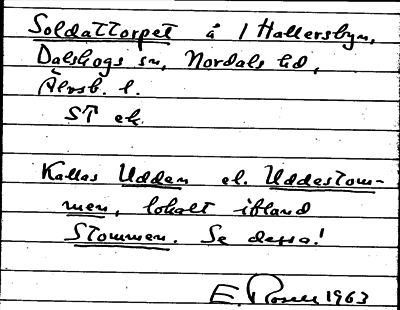 Soldattorpet å 1 Hallersbyn,
Dalskogs sn, Nordals hd,
Älvsb. l.
ST ek.
Kallas Udden el. Uddestom-
men, lokalt ibland
Stommen. Se dessa!
E. Rosell 1963